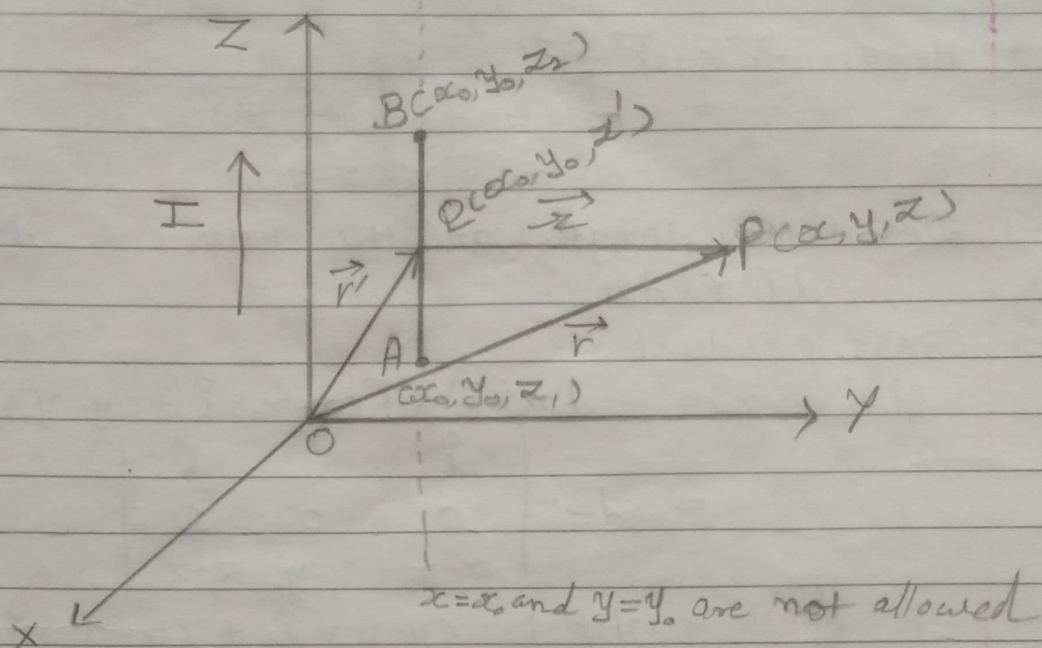 Z
B(x₀, y₀, z₂)
Q(x₀, y₀, z')
I
r⃗'
r⃗
P(x, y, z)
A
(x₀, y₀, z₁)
Y
O
x=x₀ and y=y₀ are not allowed
X